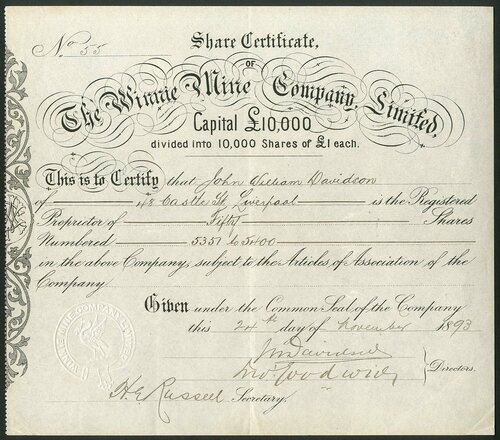 No 55
Share Certificate,
OF
The Winnie Mine Company, Limited,
Capital £10,000
divided into 10,000 Shares of £1 each.
This is to Certify that John William Davidson
of 48 Castle St, Liverpool is the Registered
Proprietor of Fifty Shares
Numbered 5351 to 5400
in the above Company, subject to the Articles of Association of the
Company.
Given under the Common Seal of the Company
this 24th day of November 1893
JWDavidson
Jno. Goodwin
Directors.
H.E. Russell Secretary.